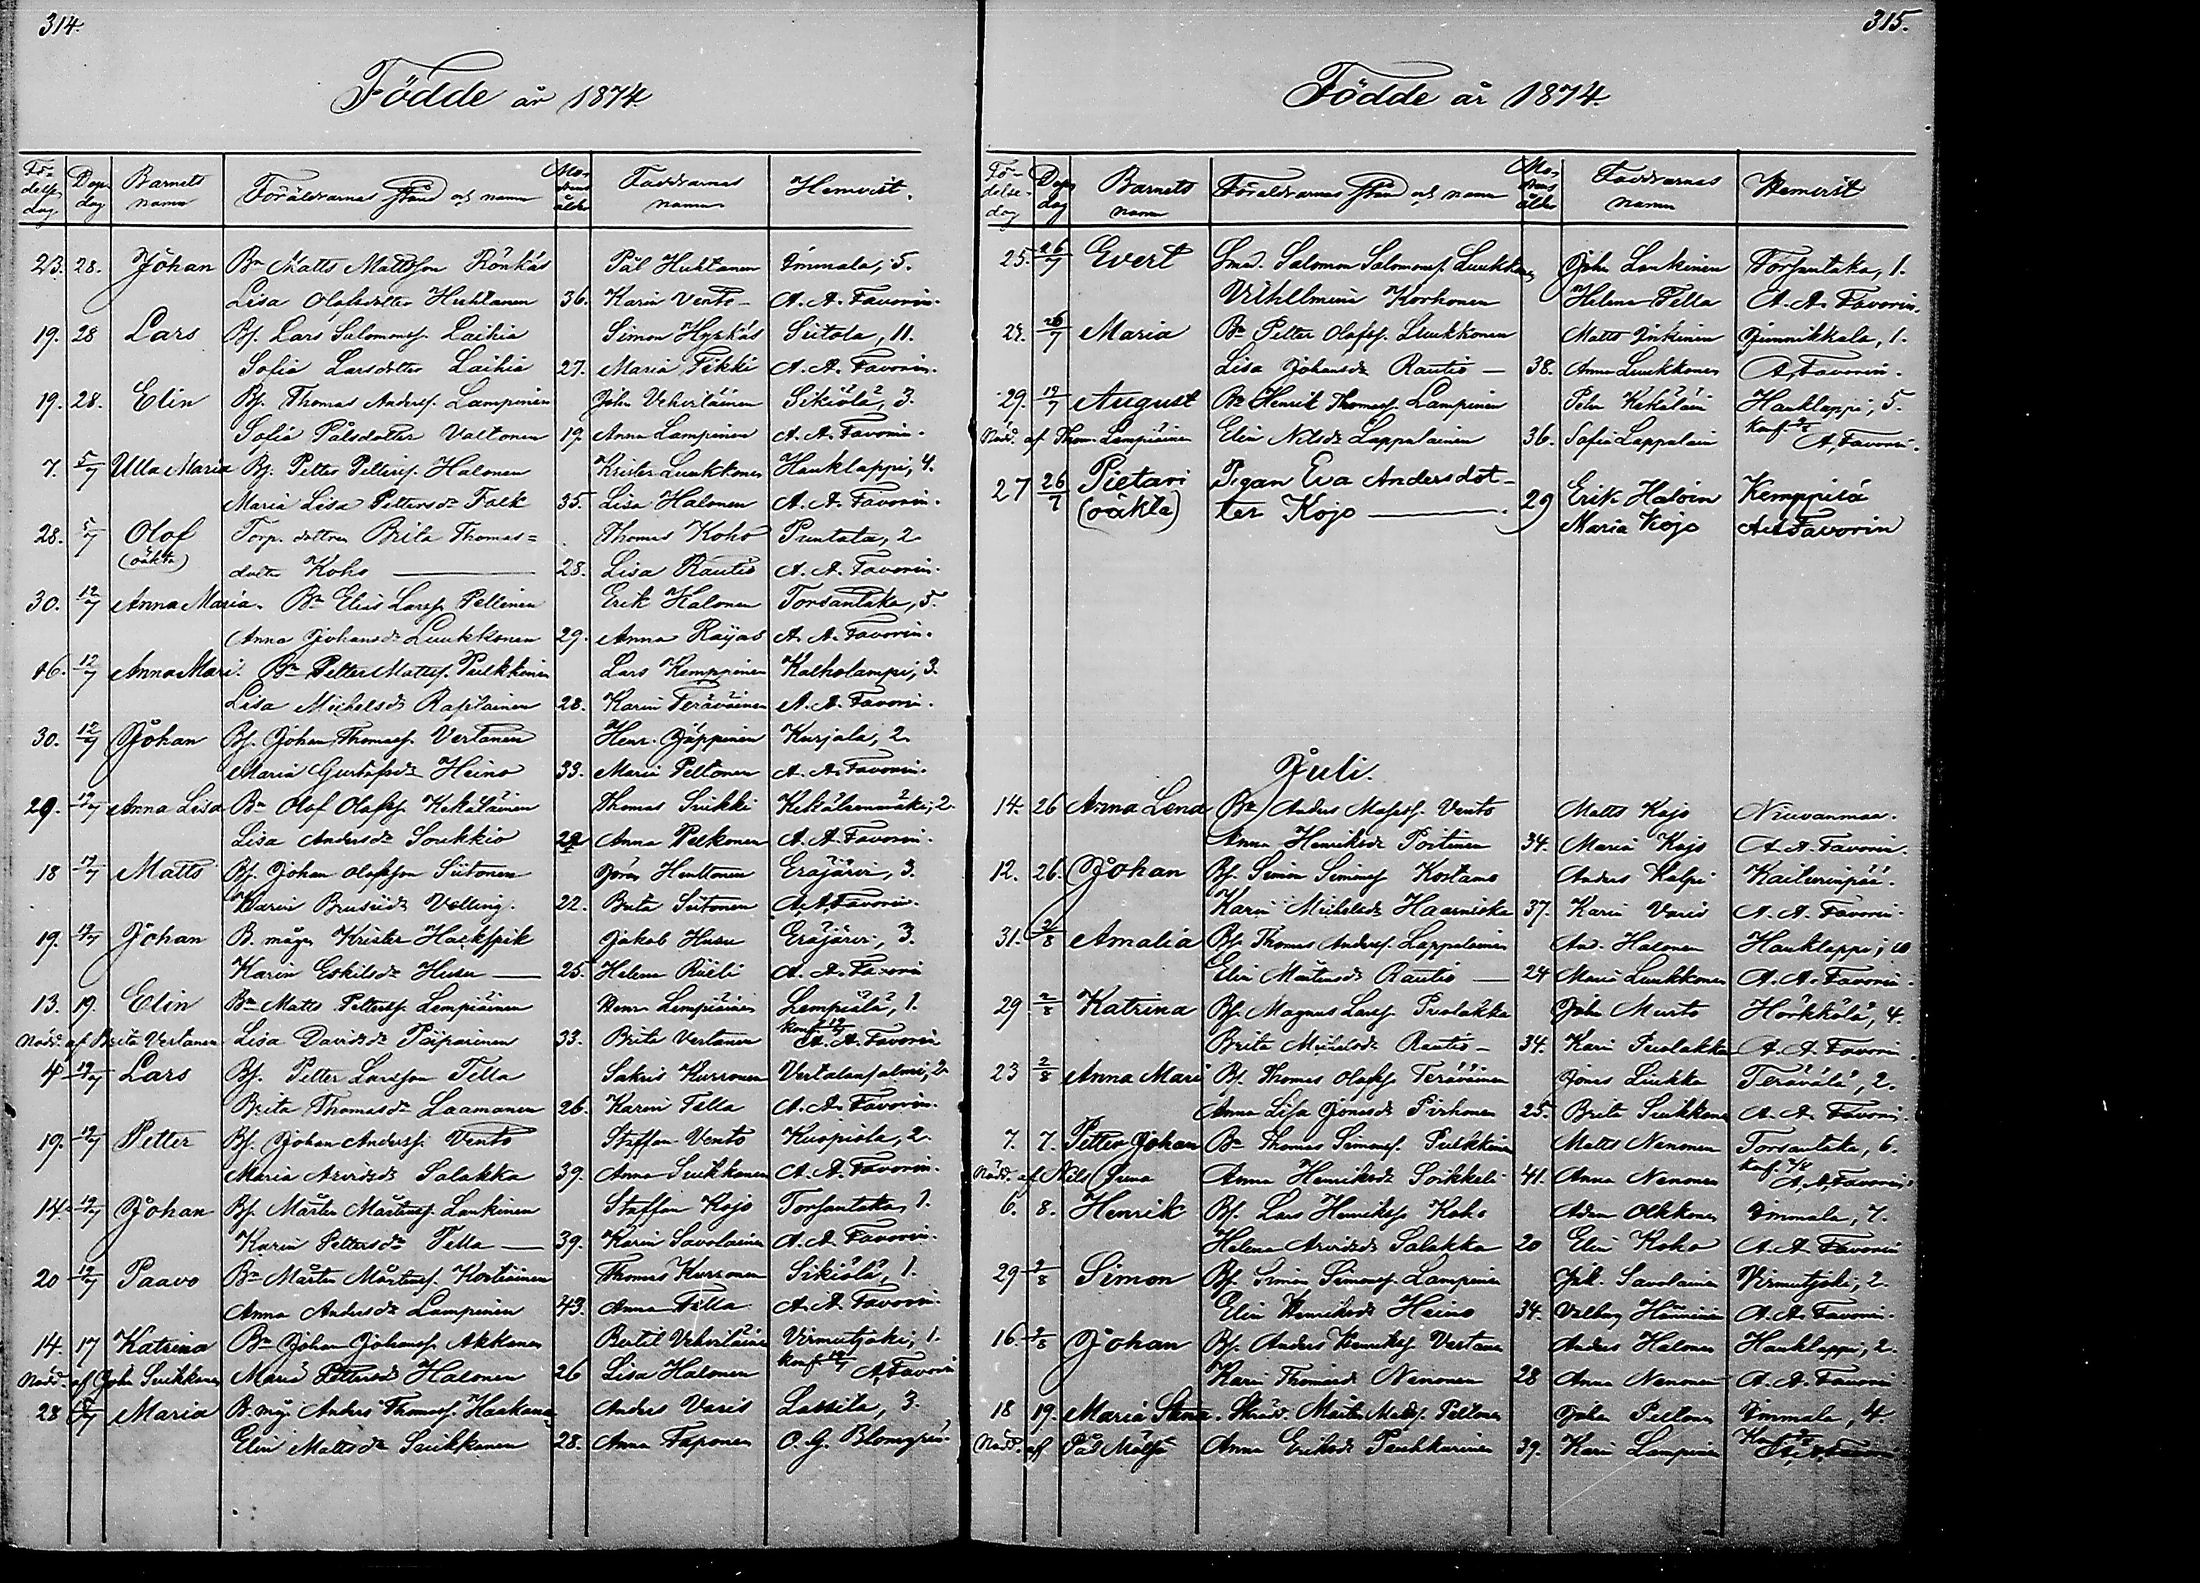 314.
Födde år 1874.
Fö-
delse
dag
Dop
dag
Barnets
namn
Föräldrarnas stånd och namn
Mo-
drens
ålder
Faddrarnas
namn
Hemvist.
23. 28. Johan Bn Matts Mattsson Rönkäs Pål Huhtanen Immala, 5.
Lisa Olofsdotter Huhtanen 36. Karin Vento A. A. Favorin.
19. 28 Lars Bf. Lars Salomonsf. Laihia Simon Hyrkäs Siitola, 11.
Sofia Larsdotter Laihia 27. Maria Tikki A. A. Favorin.
19. 28. Elin Bf. Thomas Andersf. Lampinen Joh. Vehviläinen Sikiölä, 3.
Sofia Pålsdotter Valtonen 19. Anna Lampinen A. A. Favorin.
7. 5/7 Ulla Maria Bf. Petter Pettersf. Halonen Krister Luukkonen Hauklappi, 4.
Maria Lisa Pettersdr Falk 35. Lisa Halonen A. A. Favorin.
28. 5/7 Olof Torp. dottren Brita Thomas= Thomas Koho Puntala, 2
(oäkta) dotter Koho 28. Lisa Rautio A. A. Favorin.
30. 12/7 Anna Maria. Bn Elias Larsf. Pellinen Erik Halonen Torsantaka, 5.
Anna Johansdr Luukkonen 29. Anna Rajas A. A. Favorin.
16. 12/7 Anna Mari. Bn Petter Mattsf. Pulkkinen Lars Kemppinen Kalholampi, 3.
Lisa Michelsdr Rapilainen 28. Karin Teräväinen A. A. Favorin.
30. 12/7 Johan Bf. Johan Thomasf. Vertanen Henr. Jäppinen Kurjala, 2.
Maria Gustafsdr Heino 33. Maria Peltonen A. A. Favorin.
29. 12/7 Anna Lisa Bn Olof Olofsf. Kekäläinen Thomas Suikki Kekäleenmäki, 2.
Lisa Andersdr Soukkio Anna Peskonen A. A. Favorin.
18 19/7 Matts Bf. Johan Olofsson Siitonen Jöran Huttunen Eräjärvi, 3.
Karin 22. Brita Siitonen A. A. Favorin.
19. 19/7 Johan B. måg. Krister Hackspik Jakob Husu Eräjärvi, 3.
Karin Eskilsdr Husu 25. Helena Rieli A. A. Favorin
13. 19. Elin Bn Matts Pettersf. Lempiäinen Henr. Lempiäinen Lempiälä, 1.
Nöd. af Brita Vertanen Lisa Davidsdr Piiparinen 33. Brita Vertanen Konf. 19/7 A. A. Favorin
4 19/7 Lars Bf. Petter Larsson Tella Sakris Kurronen Vertalansalmi, 2.
Brita Thomasdr Laamanen 26. Karin Tella A. A. Favorin.
19. 19/7 Petter Bf. Johan Andersf. Vento Staffan Vento Kuopiola, 2.
Maria Arvidsdr Salakka 39. Anna Suikkanen A. A. Favorin.
14. 19/7 Johan Bf. Mårten Mårtensf. Lankinen Staffan Kojo Torsantaka, 1.
Karin Pettersdr Tella 39. Karin Savolainen A. A. Favorin.
20 19/7 Paavo Bn Mårten Mårtensf. Kostiainen Thomas Kurronen Sikiölä, 1.
Anna Andersdr Lampinen 43. Anna Tella A. A. Favorin.
14. 17 Katrina Bn Johan Johansf. Akkanen Bertil Vehviläinen Virmutjoki, 1.
Nöd. af Joh. Suikkanen Maria Pettersdr Halonen 26 Lisa Halonen Konf. A. Favorin
28 Maria B. måg. Anders Thomasf. Haakana Anders Varis Lassila, 3.
Elin Mattsdr Suikkanen 28. Anna Taponen O. G. Blomgren.
315.
Födde år 1874.
Fö-
delse-
dag
Dop
dag
Barnets
namn
Föräldrarnas stånd och namn
Mo-
drens
ålder
Faddrarnas
namn
Hemvist
25. 26/7 Evert Smed. Salomon Salomonsf. Luukkonen Joh. Lankinen Torsantaka, 1.
Vilhelmina Korhonen Helena Tella A. A. Favorin.
26/7 Maria Bn Petter Olofsf. Luukkonen Matts Inkinen Junnikkala, 1.
Lisa Johansdr Rautio 38. Anna Luukkonen A. Favorin.
29. 19/7 August Bn Henrik Thomasf. Lampinen Petr. Kekäläin Hauklappi, 5.
Nöd. af Thom. Lempiäinen Elin Nilsdr Lappalainen 36. Sofia Lappalain Konf. A. Favorin.
27 26/7 Pietari Pigan Eva Andersdot-
(oäkta) ter Kojo 29 Erik Haloin Kemppilä
Maria Kojo A. A. Favorin
Juli.
14. 26 Anna Lena Bn Anders Vento Matts Kojo Niuvanmaa.
Anna Henriksdr Poitinen 34. Maria Kojo A. A. Favorin.
12. 26. Johan Bf. Simon Simonsf. Kostamo Anders Kalpi Kaiturinpää.
Karin Michelsdr Haarniska 37. Karin Varis A. A. Favorin.
31. 2/8 Amalia Bf. Thomas Andersf. Lappalainen And. Halonen Hauklappi, 10
Elin Mårtensdr Rautio 24 Maria Luukkonen A. A. Favorin.
29 2/8 Katrina Bf. Magnus Larsf. Puolakka Joh. Murto Hörkkölä, 4.
Brita Michelsdr Rautio 34. Karin Puolakka A. A. Favorin.
23 2/8 Anna Mari Bf. Thomas Olofsf. Teräväinen Jonas Liukka Terävälä, 2.
Anna Lisa Jonasdr Pirhonen 25. Brita Suikkanen A. A. Favorin.
7. 7. Petter Johan Bn Thomas Simonsf. Pulkkinen Matts Nenonen Torsantaka, 6.
Nöd. af Nils Anna Henriksdr Soikkeli 41. Anna Nenonen Konf. A. A. Favorin.
6. 8. Henrik Bf. Lars Henriksf. Koho Adam Olkkonen Immala, 7.
Helena Arvidsdr Salakka 20 Elin Koho A. A. Favorin
29 2/8 Simon Bf. Simon Simonsf. Lampinen Joh. Savolainen Virmutjoki, 2.
Elin Henriksdr Heino 34. Valborg Hänninen A. A. Favorin.
16. 2/8 Johan Bf. Anders Henriksf. Vertanen Anders Halonen Hauklappi, 2.
Karin Thomasdr Nenonen 28 Anna Nenonen A. A. Favorin
18 19. Maria Stina. Skräd. Mårten Mattsf. Peltonen Johan Peltonen Immala, 4.
Nöd. af Pål Mölsä Anna Eriksdr Puhkurinen 39. Karin Lampinen Konf. A. A. Favorin